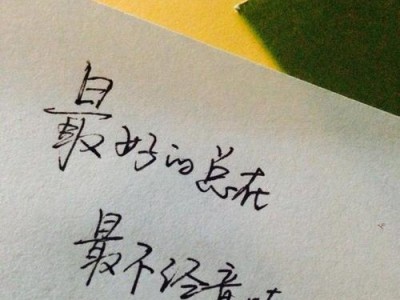 最好的总在
最不经意